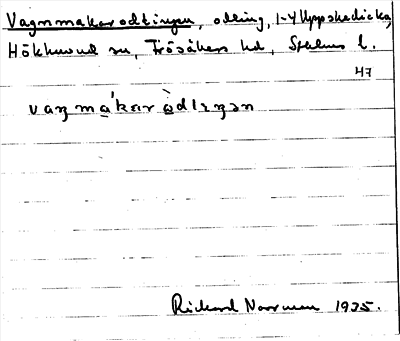 Vagnmakarodlingen, odling, 1-4 Uppskedicka,
Hökhuvud sn, Frösåkers hd, Sthlms l.
47
vaŋmákaròdlıŋən
Richard Norrman 1935.